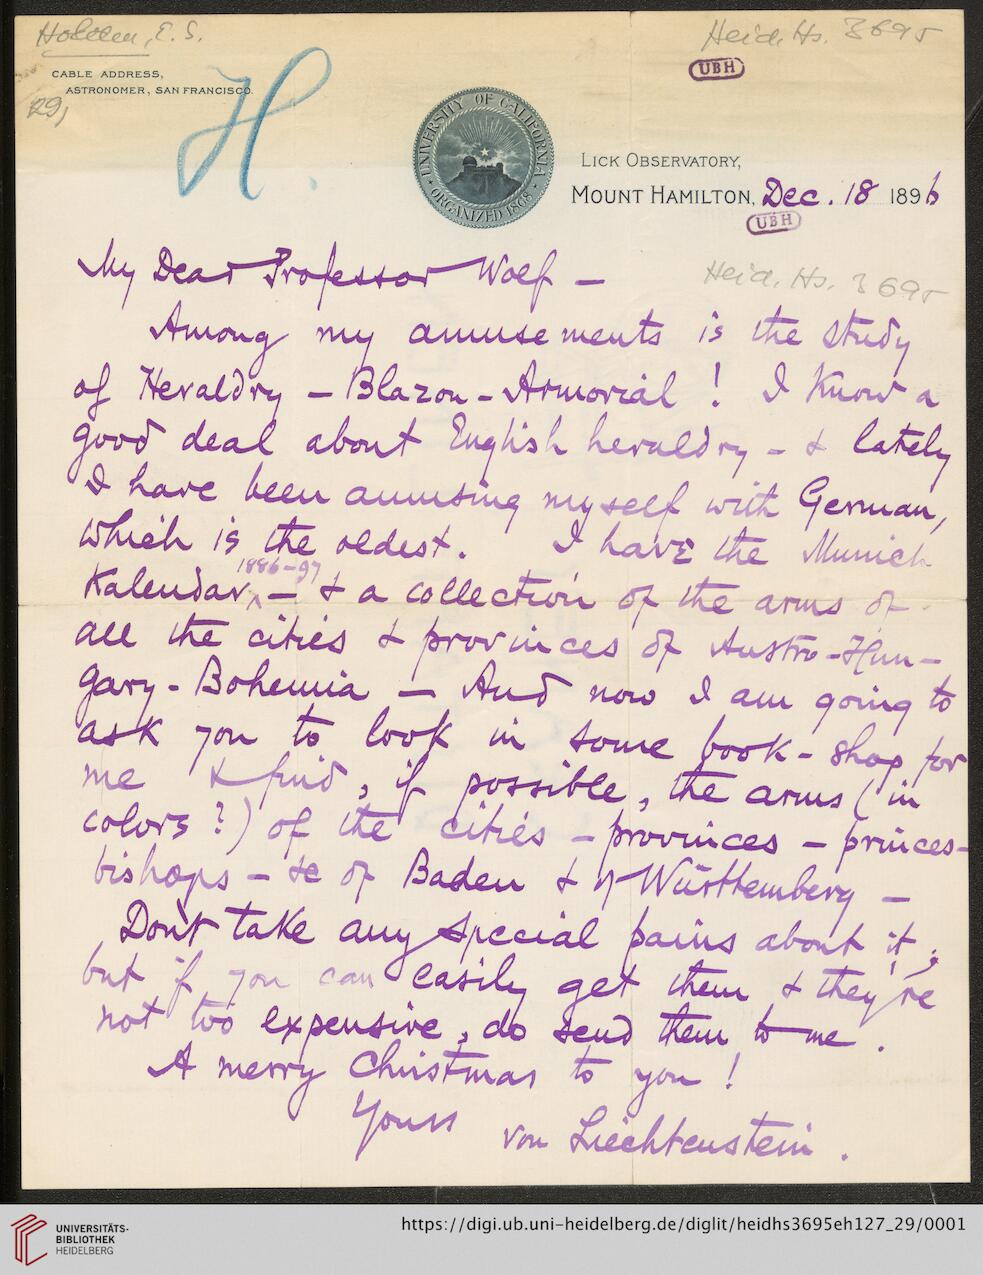 Holden, E. S.
Heid. Hs. 3695
UBH
CABLE ADDRESS,
ASTRONOMER, SAN FRANCISCO.
29)
H.
UNIVERSITY OF CALIFORNIA
ORGANIZED 1868
LICK OBSERVATORY,
MOUNT HAMILTON, Dec. 18 1896
UBH
My Dear Professor Wolf —
Heid. Hs. 3695
Among my amusements is the study
of Heraldry – Blazon – Armorial ! I know a
good deal about English heraldry – & lately
I have been amusing myself with German,
which is the oldest. I have the Munich
1886–97
Kalendar ^ — & a collection of the arms of
all the cities & provinces of Austro-Hun-
gary - Bohemia — And now I am going to
ask you to look in some book-shop for
me & find, if possible, the arms (in
colors ?) of the cities – provinces – princes–
bishops – &c of Baden & of Württemberg —
Don't take any special pains about it;
but if you can easily get them & they're
not too expensive, do send them to me.
A merry Christmas to you !
Yours von Liechtenstein.
UNIVERSITÄTS-
BIBLIOTHEK
HEIDELBERG
https://digi.ub.uni-heidelberg.de/diglit/heidhs3695eh127_29/0001